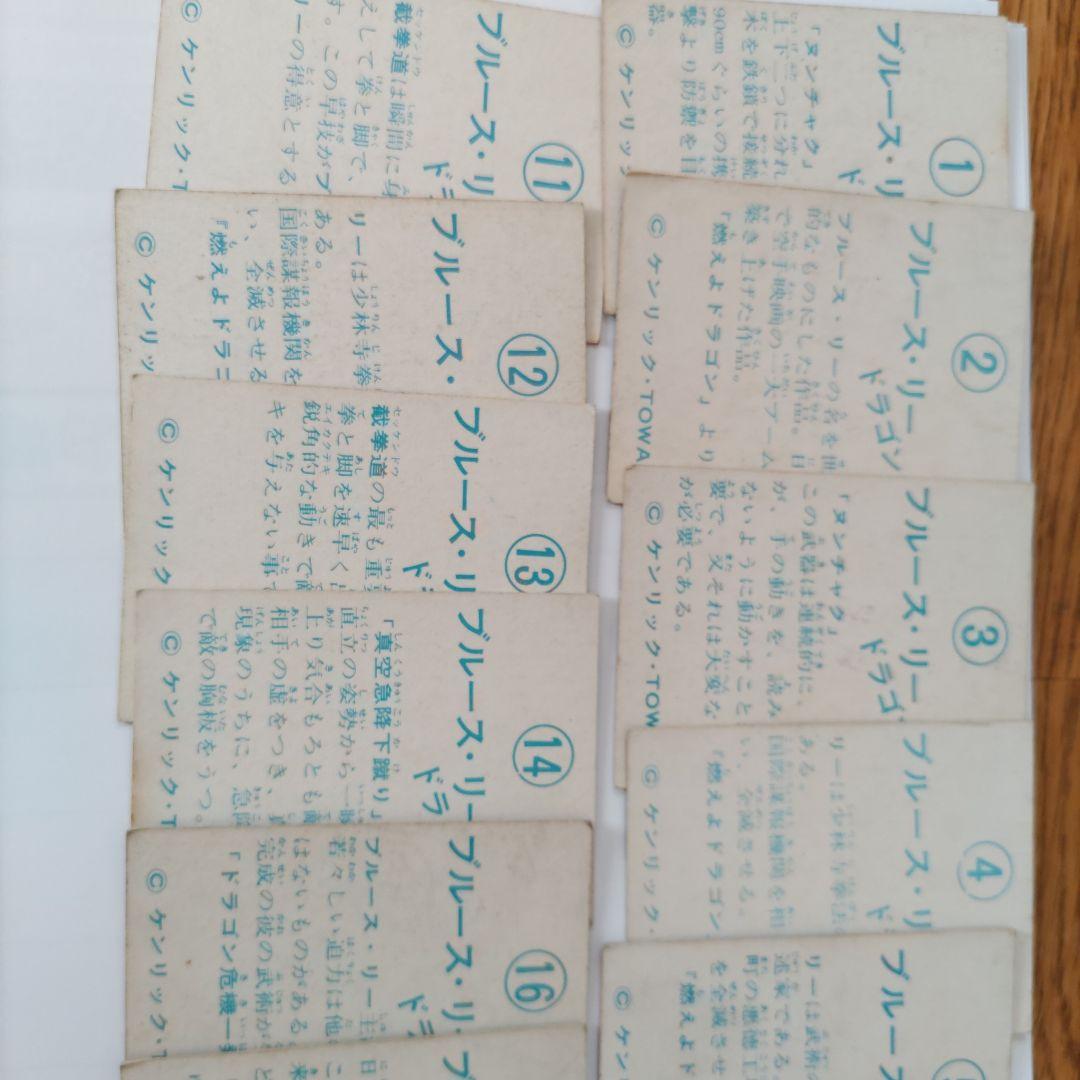 ①
ブルース・リ
ド
「ヌンチャク」
上下二つに分れ
木を鉄鎖で接続
90cmぐらいの携
撃より防禦を目
器。
Ⓒ ケンリック
②
ブルース・リー
ドラゴン
ブルース・リーの名を世
的なものにした作品。日
で空手映画の一大ブーム
築き上げた作品。
『燃えよドラゴン』より
Ⓒ ケンリック・TOWA
③
ブルース・リー
ドラゴン
「ヌンチャク」
この武器は連続的に、
が、手の動きを、読み
ないように動かすこと
要で、又それは大変な
が必要である。
Ⓒ ケンリック・TOW
④
ブルース・リ
ド
リーは少林寺拳法
ある。
国際諜報機関を相
い、全滅させる。
『燃えよドラゴン
Ⓒ ケンリック・
ブルース
リーは武術の
述家である
町の悪徳工
を全滅させ
『燃えよド
Ⓒ ケンリ
⑪
ブルース・リ
ドラ
截拳道は瞬間に身
えして拳と脚で、
す。この早技がブ
リーの得意とする
Ⓒ ケンリック・T
⑫
ブルース・
リーは少林寺拳
ある。
国際諜報機関を
い、全滅させる
『燃えよドラゴ
Ⓒ ケンリッ
⑬
ブルース・リ
ド
截拳道の最も重要
拳と脚を速早く
鋭角的な動きで
キを与えない事
Ⓒ ケンリック
⑭
ブルース・リー
ドラ
「真空急降下蹴り」
直立の姿勢から一瞬
上り気合もろとも敵
相手の虚をつき、真
現象のうちに、急降
で敵の胸板をうつ。
Ⓒ ケンリック・T
⑯
ブルース・リ
ド
ブルース・リー主
若々しい迫力は他
はないものがある
完成の彼の武術が
「ドラゴン危機一
Ⓒ ケンリック・